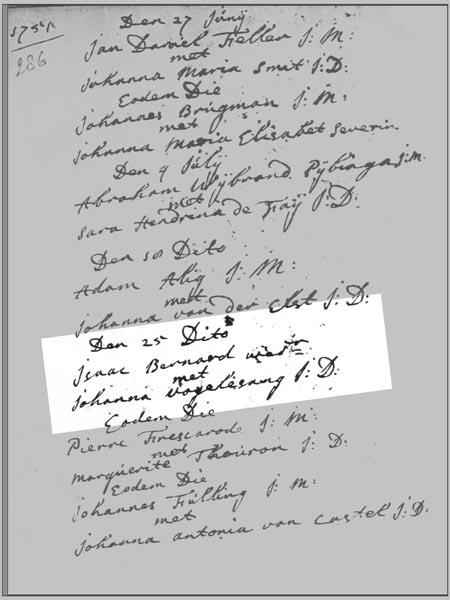 286
Den 27 Junÿ
Jan Daniel Feller J: M:
met
Johanna Maria Smit J: D:
Eodem Die
Johannes Brugman J: M:
met
Johanna Maria Elisabet Severin
Den 9 Julÿ
Abraham Wijbrand J: M.
met
Sara Hendrina de J: D:
Den 10 Dito
Adam Alig J: M:
met
Johanna van der Elst J: D:
Den 25 Dito
Isaac Bernard
met
Johanna Vogelesang J: D:
Eodem Die
Pierre J: M:
met
Marguerite Thouron J: D:
Eodem Die
Johannes Fülling J: M:
met
Johanna Antonia van Castel J: D.